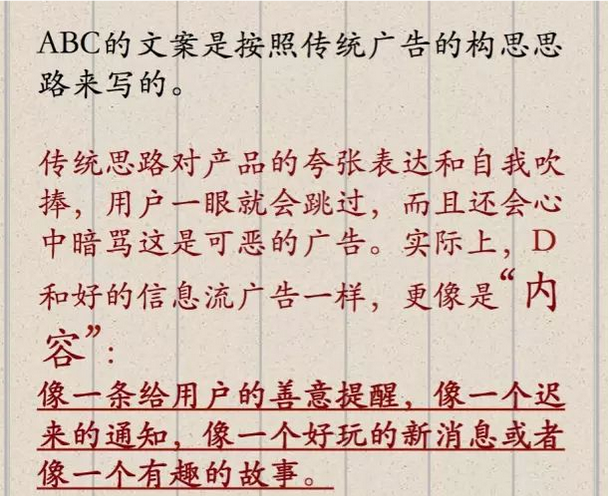 ABC的文案是按照传统广告的构思思
路来写的。
传统思路对产品的夸张表达和自我吹
捧，用户一眼就会跳过，而且还会心
中暗骂这是可恶的广告。实际上，D
和好的信息流广告一样，更像是“内
容”：
像一条给用户的善意提醒，像一个迟
来的通知，像一个好玩的新消息或者
像一个有趣的故事。